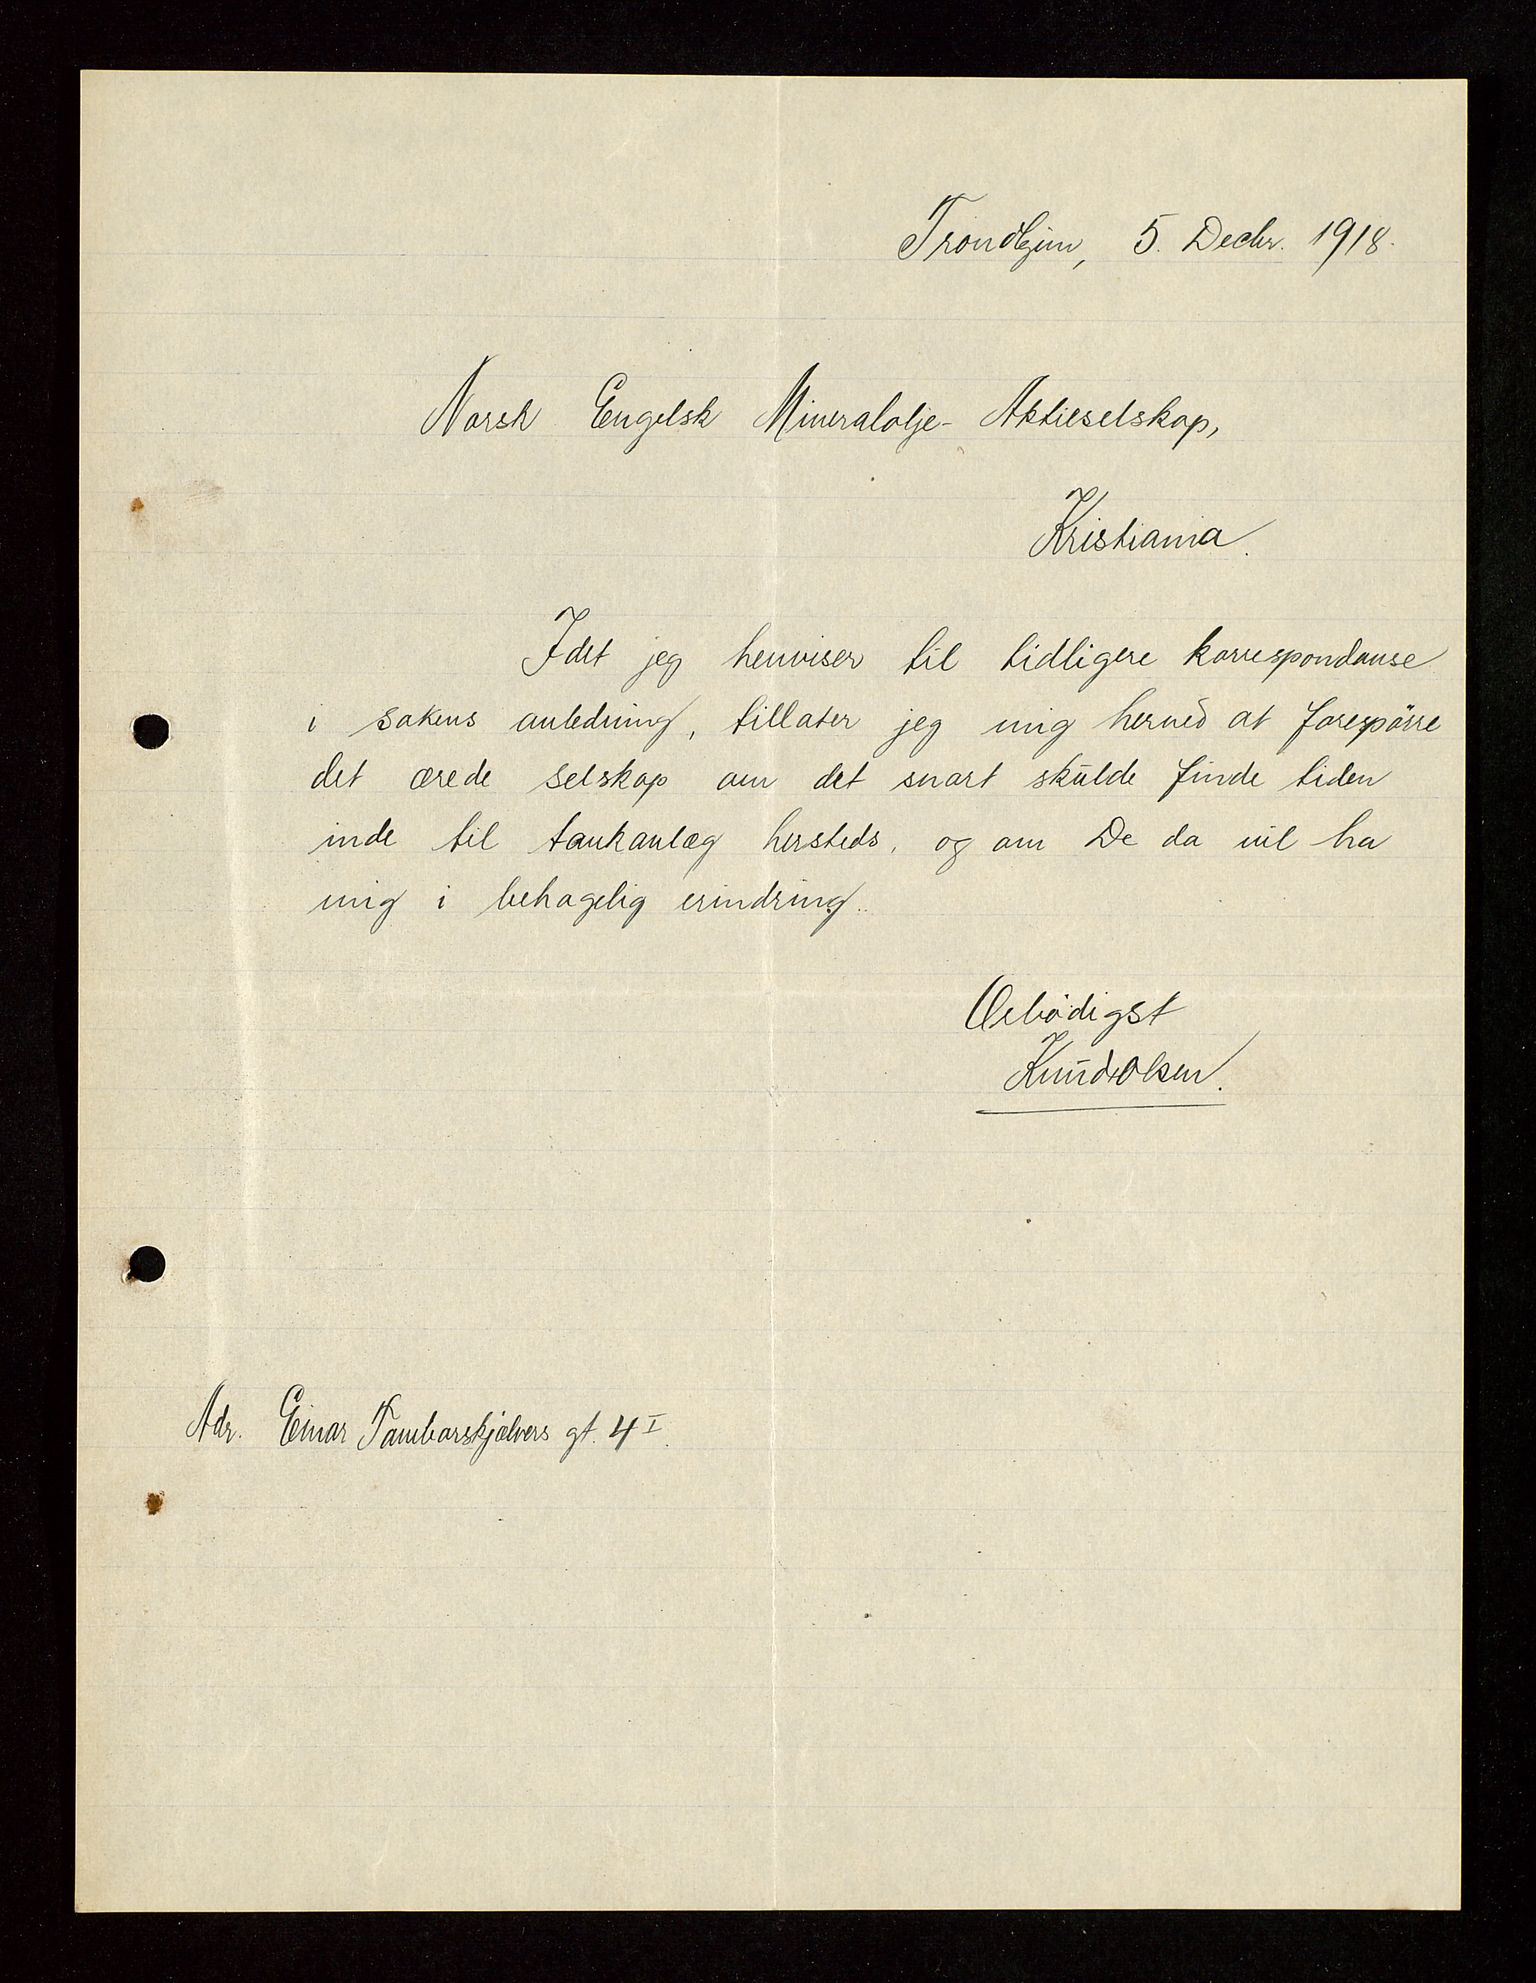 Trondhjem, 5. Decbr. 1918.
Norsk Engelsk Mineralolje- Aktieselskap,
Kristiania.
Idet jeg henviser til tidligere korrespondanse
i sakens anledning, tillater jeg mig herved at forespørre
det ærede selskap om det snart skulde finde tiden
inde til tankanlæg hersteds, og om De da vil ha
mig i behagelig erindring.
Ærbødigst
Knud Olsen.
Adr. Einar Tambarskjelvers gt. 4 I.